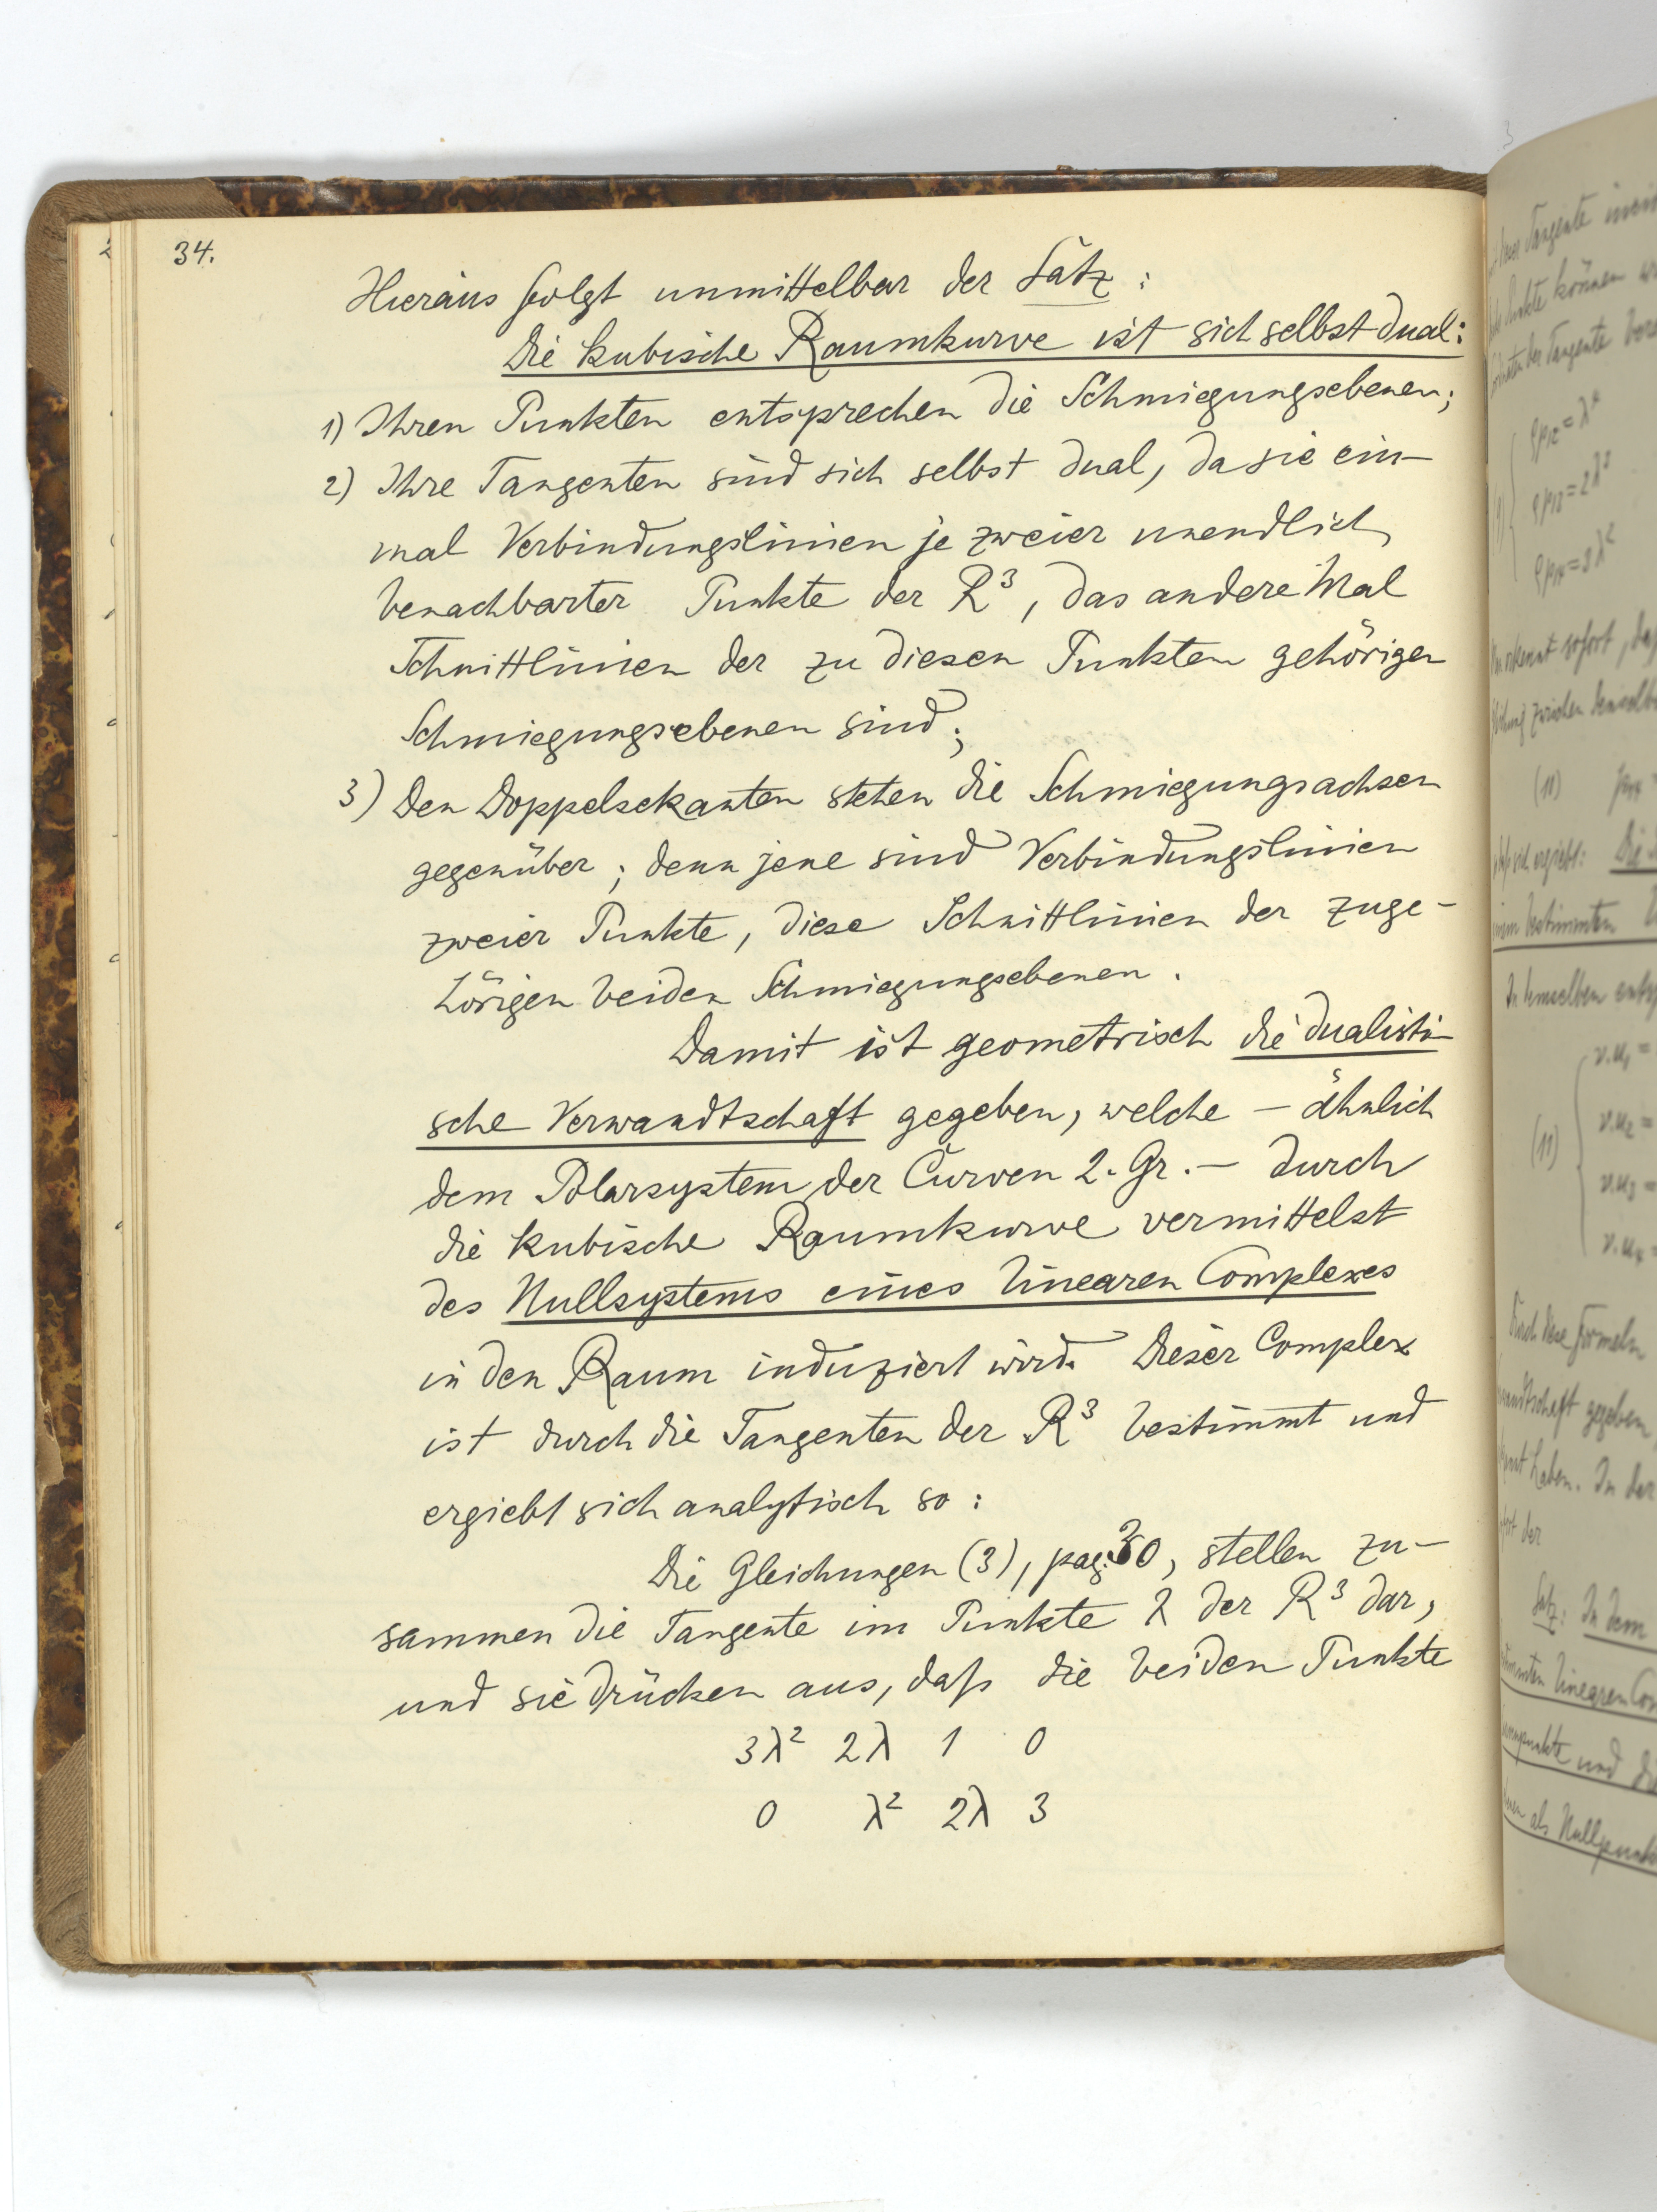 34.
Hieraus folgt unmittelbar der Satz :
Die kubische Raumkurve ist sich selbst dual:
1) Ihren Punkten entsprechen die Schmiegungsebenen;
2) Ihre Tangenten sind sich selbst dual, da sie ein-
mal Verbindungslinien je zweier unendlich
benachbarter Punkte der R³, das andere Mal
Schnittlinien der zu diesen Punkten gehörigen
Schmiegungsebenen sind;
3) Den Doppelsekanten stehen die Schmiegungsachsen
gegenüber; denn jene sind Verbindungslinien
zweier Punkte, diese Schnittlinien der zuge-
hörigen beiden Schmiegungsebenen.
Damit ist geometrisch die dualisti-
sche Verwandtschaft gegeben, welche – ähnlich
dem Polarsystem der Curven 2. Gr. – durch
die kubische Raumkurve vermittelst
des Nullsystems eines linearen Complexes
in den Raum induziert wird. Dieser Complex
ist durch die Tangenten der R³ bestimmt und
ergiebt sich analytisch so :
Die Gleichungen (3), pag. 30, stellen zu-
sammen die Tangente im Punkte λ der R³ dar,
und sie drücken aus, daß die beiden Punkte
3λ² 2λ 1 0
0 λ² 2λ 3
Tangente
Punkte können
der Tangente
erkennt sofort, daß
zwischen
(10)
sich ergiebt: Die
bestimmten
In demselben
(11)
v.u₁ =
v.u₂ =
v.u₃ =
v.u₄ =
Durch diese Formeln
gegeben
haben. In der
der
Satz: In dem
linearen
und die
als Nullpunkt